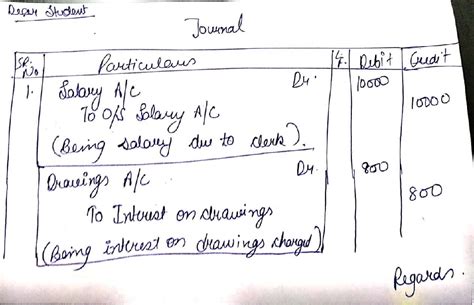 Dear Student
Journal
Sr. No Particulars L.F. Debit Credit
1. Salary A/C Dr. 10000
To O/S Salary A/C 10000
(Being salary due to clerk).
Drawings A/C Dr. 800
To Interest on drawings 800
(Being interest on drawings charged)
Regards.